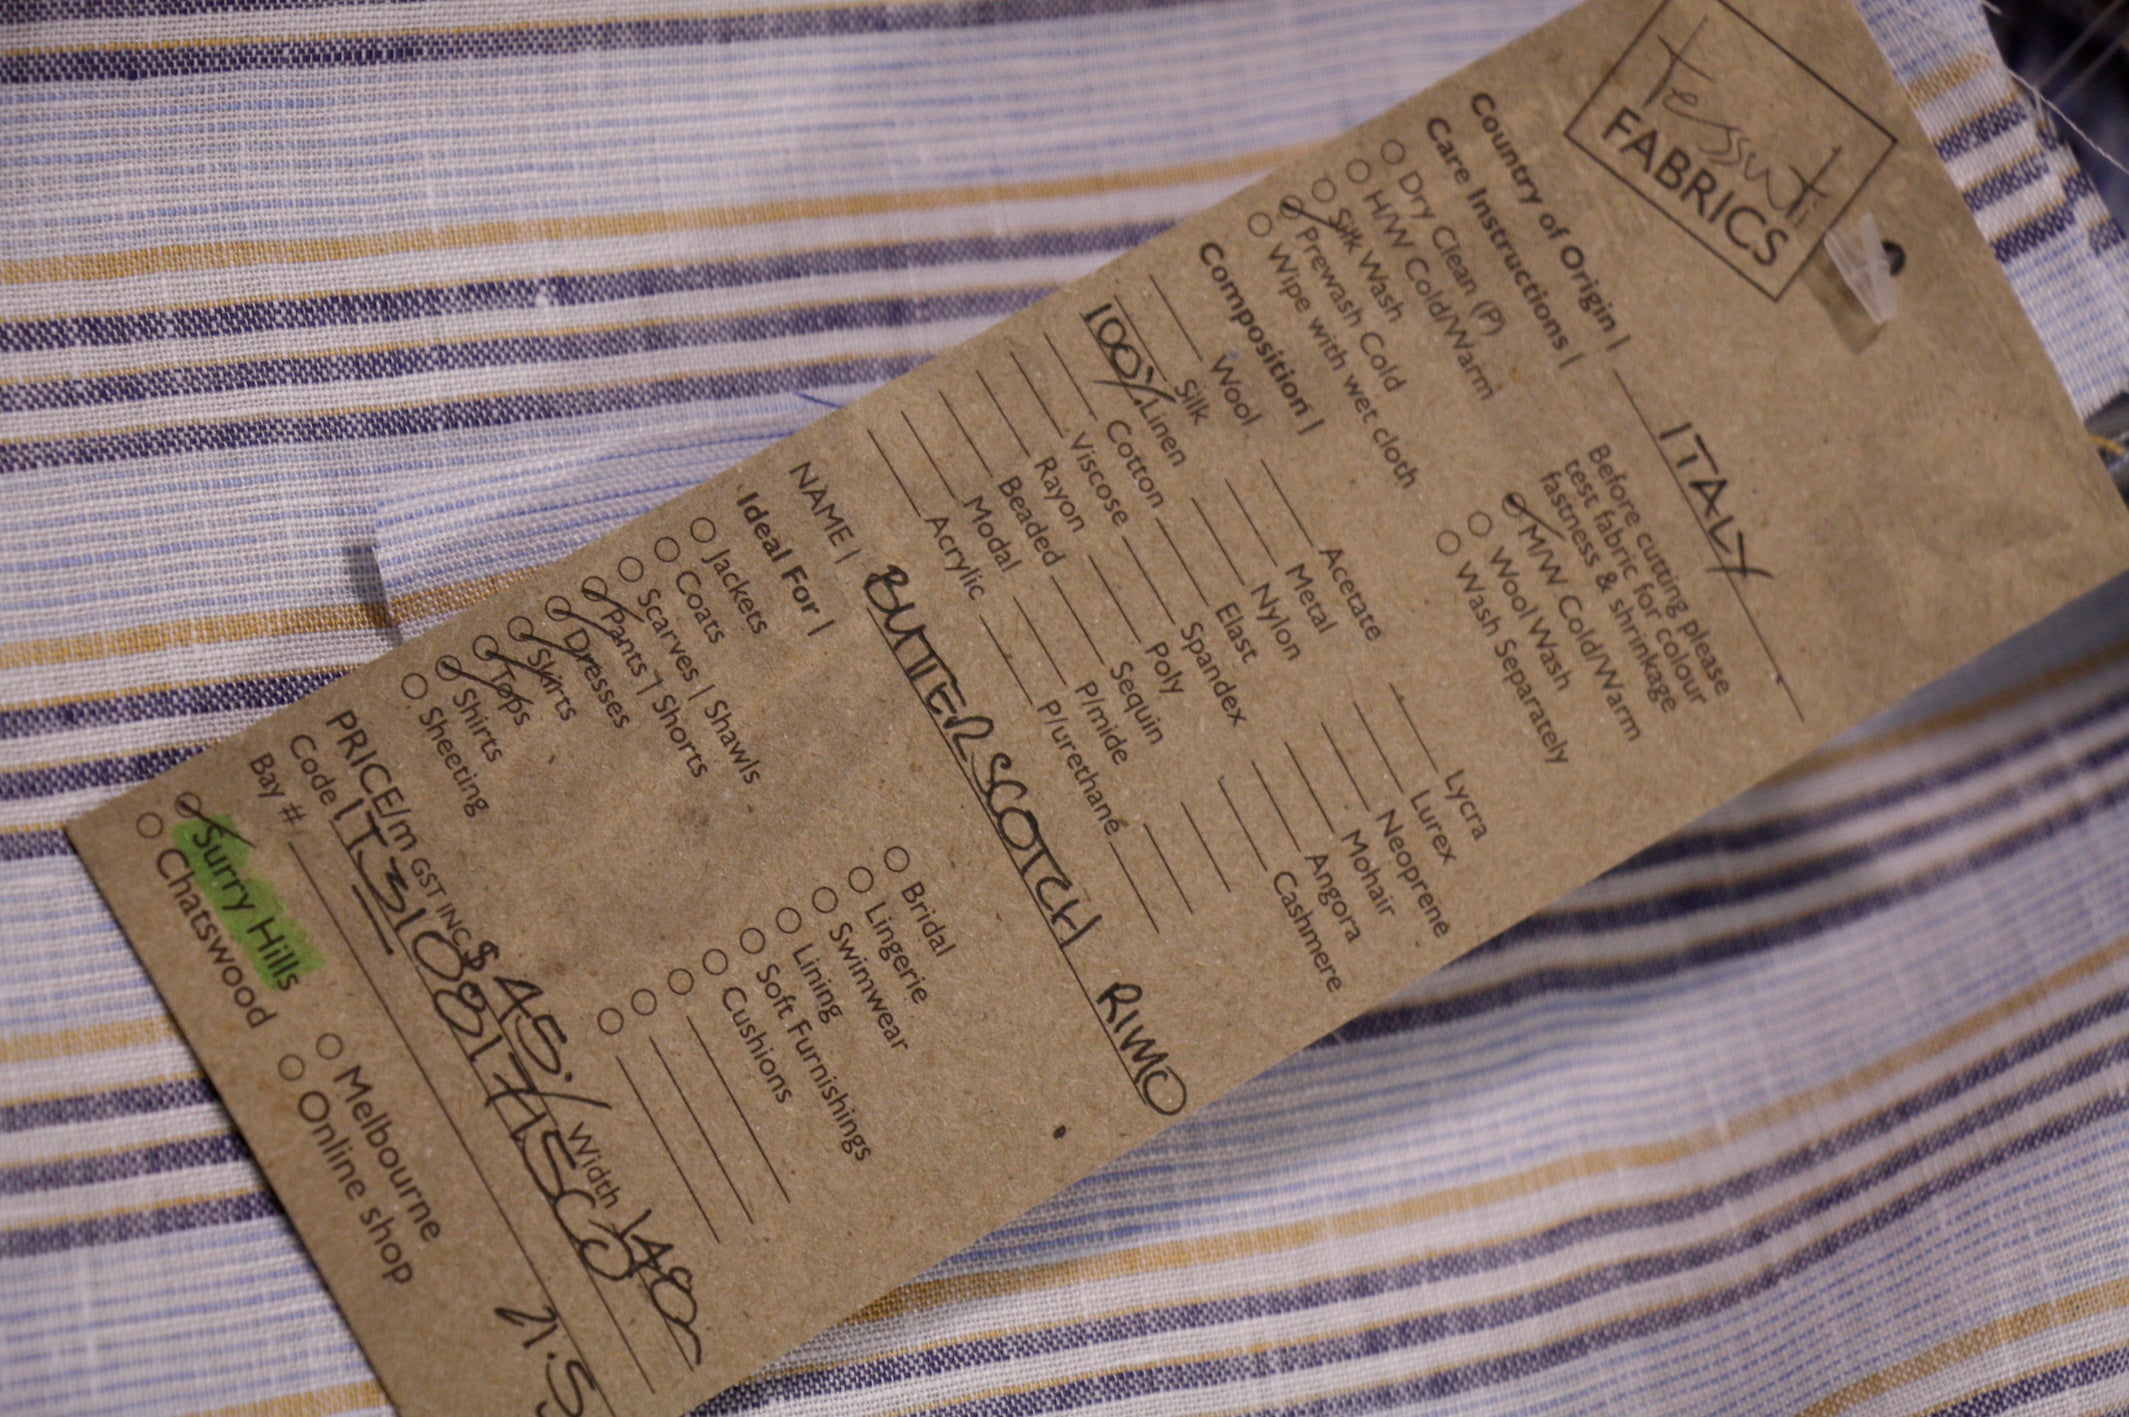 tessuti
FABRICS
Country of Origin | ITALY
Care Instructions |
Dry Clean (P)
H/W Cold/Warm
Silk Wash
Prewash Cold
Wipe with wet cloth
Before cutting please
test fabric for colour
fastness & shrinkage
M/W Cold/Warm
Wool Wash
Wash Separately
Composition |
Wool
Silk
100% Linen
Cotton
Viscose
Rayon
Beaded
Modal
Acrylic
Acetate
Metal
Nylon
Elast
Spandex
Poly
Sequin
P/mide
P/urethane
Lycra
Lurex
Neoprene
Mohair
Angora
Cashmere
NAME | BUTTERSCOTCH RIMO
Ideal For |
Jackets
Coats
Scarves | Shawls
Pants | Shorts
Dresses
Skirts
Tops
Shirts
Sheeting
Bridal
Lingerie
Swimwear
Lining
Soft Furnishings
Cushions
PRICE/m GST INC $45./ Width 148
Code
Bay #
Surry Hills
Chatswood
Melbourne
Online shop